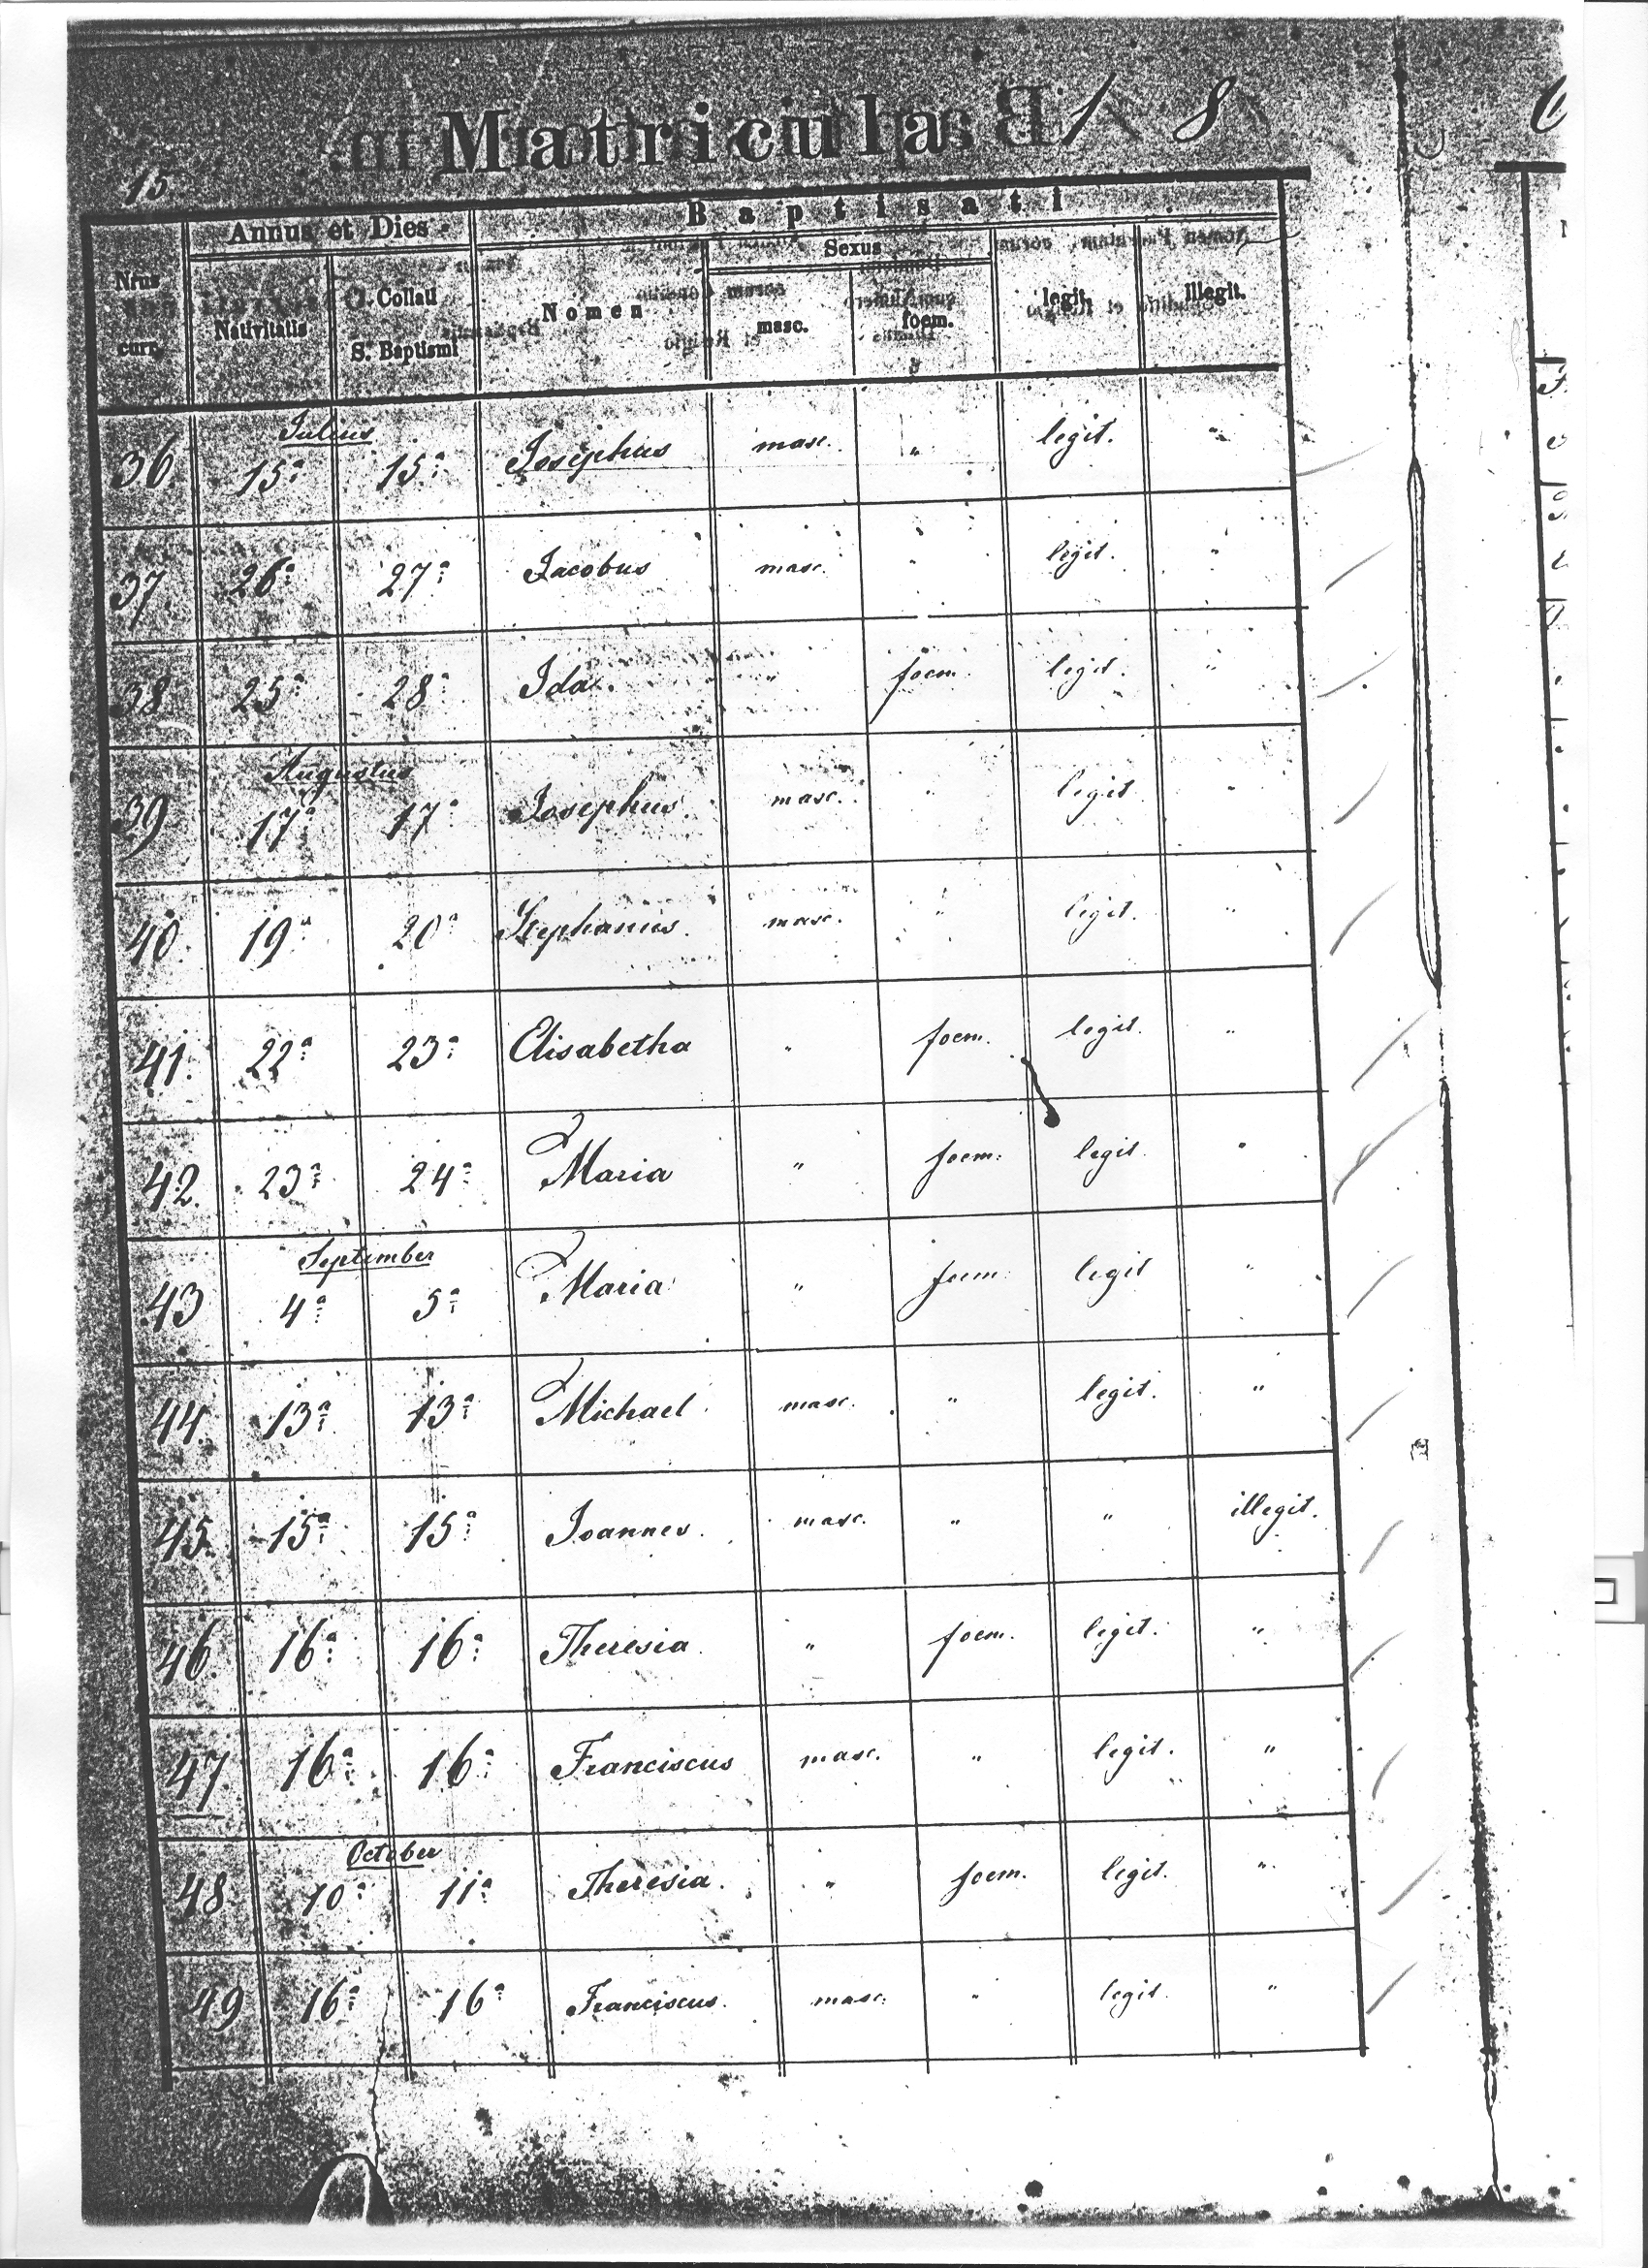 Matricula
15
Annus et Dies
Baptisati
Nrus curr.
Nativitatis
Collati S. Baptismi
Nomen
Sexus
masc.
foem.
legit.
illegit.
Julius
36 15ª 15ª Josephus masc. " legit. "
37 26ª 27ª Jacobus masc. " legit. "
38 25ª 28ª Ida. " foem. legit. "
Augustus
39 17ª 17ª Josephus masc. " legit "
40. 19ª 20ª Stephanus. masc. " legit. "
41. 22ª 23ª Elisabetha " foem. legit. "
42. 23ª 24ª Maria " foem. legit "
September
43 4ª 5ª Maria " foem. legit "
44 13ª 13ª Michael. masc. " legit. "
45. 15ª 15ª Joannes. masc. " " illegit.
46. 16ª 16ª Theresia. " foem. legit. "
47 16ª 16ª Franciscus masc. " legit. "
October
48 10ª 11ª Theresia. " foem. legit. "
49 16ª 16ª Franciscus. masc. " legit. "